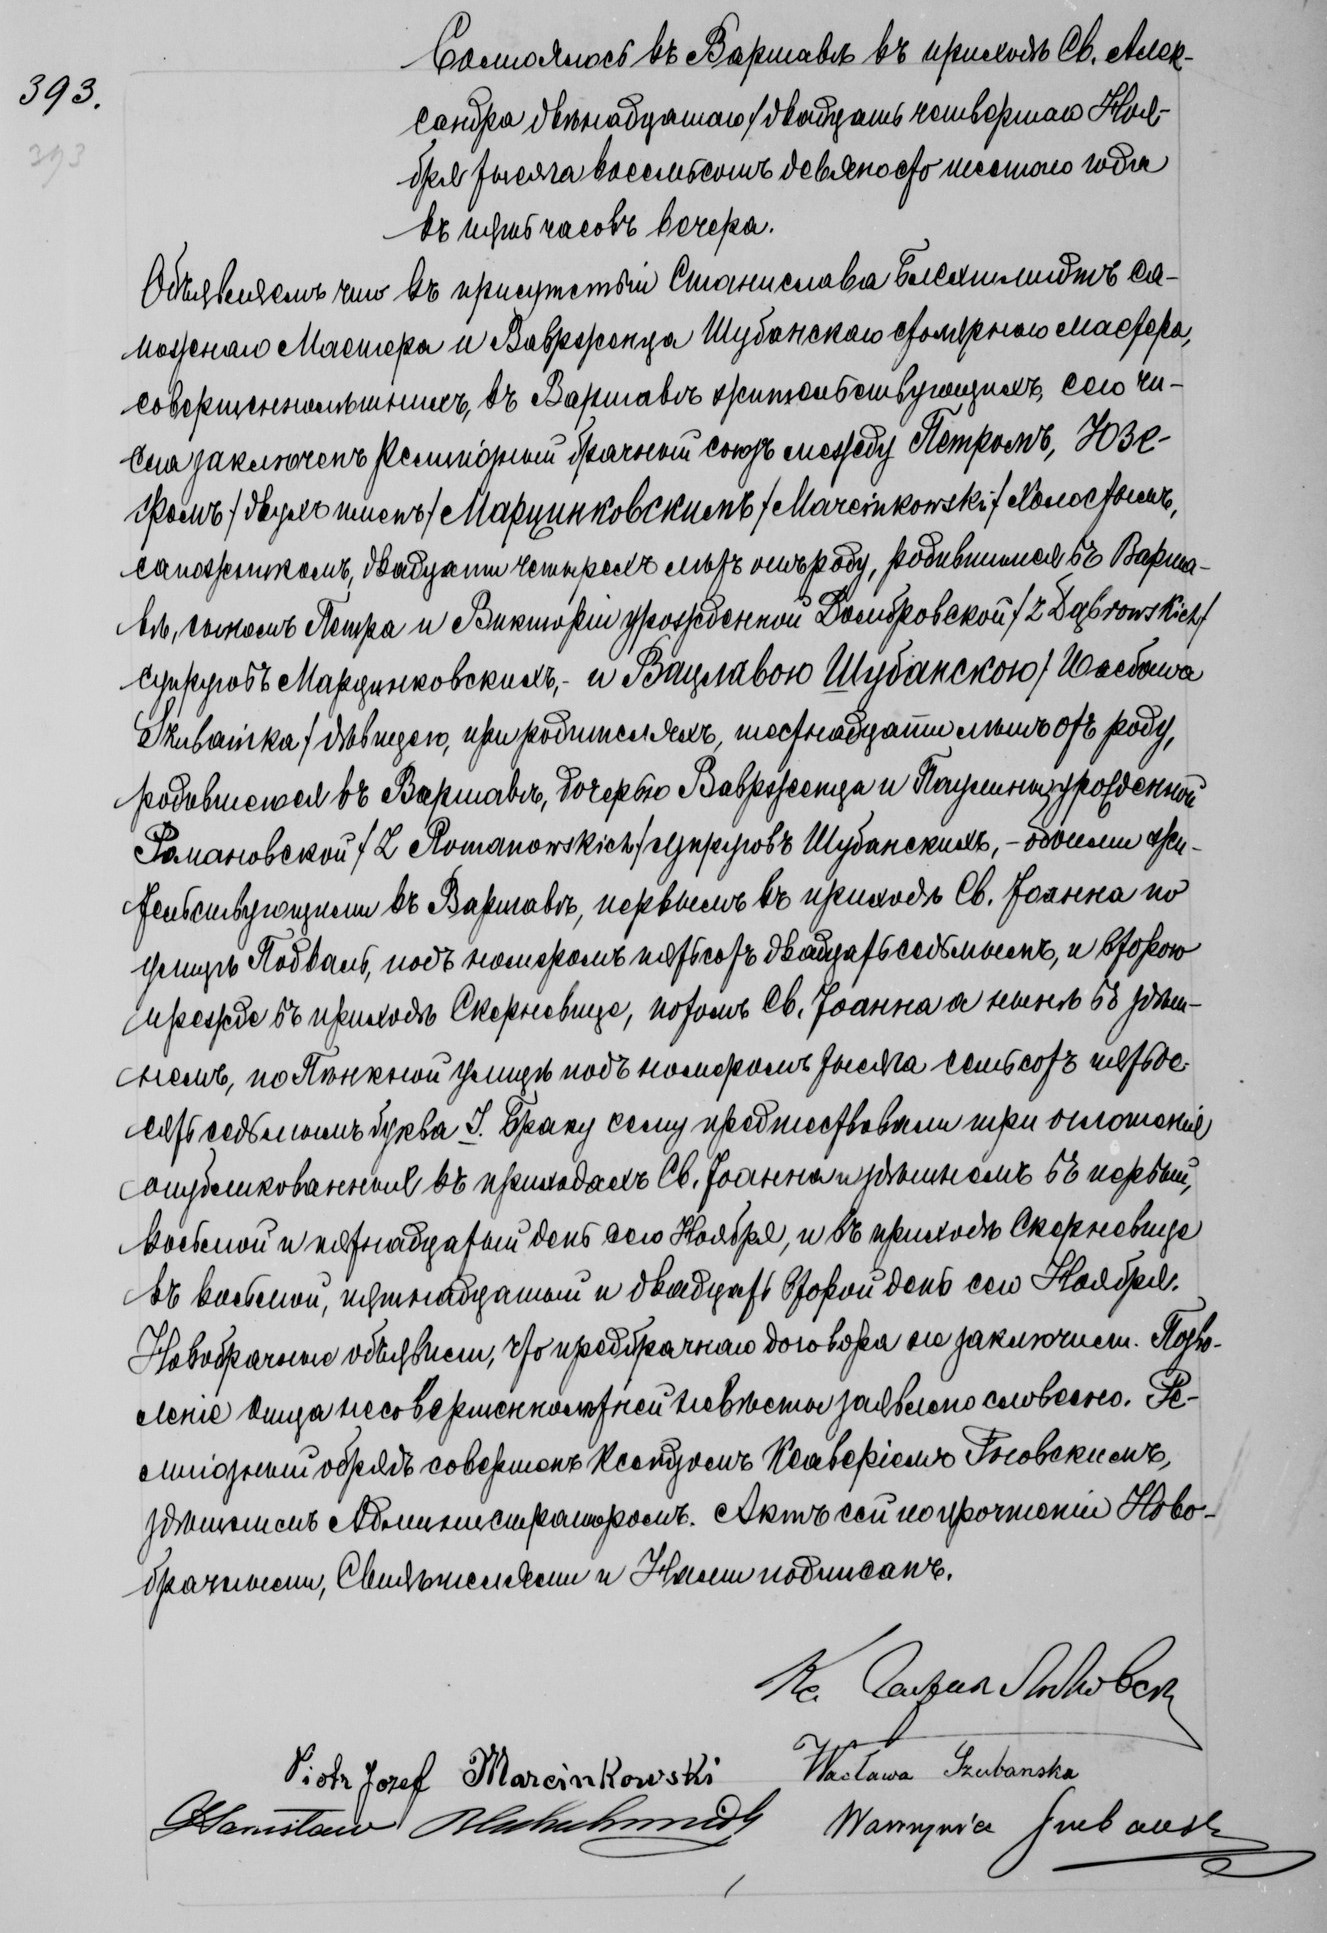 393.
393
Состоялось въ Варшавѣ въ приходѣ Св. Алек-
сандра двѣнадцатаго / двадцать четвертаго Ноя-
бря тысяча восемьсотъ девяносто шестого года
въ пять часовъ вечера.
Объявляемъ что въ присутствіи Станислава Блехшмидтъ са-
пожнаго Мастера и Ваврженца Шубанскаго столярнаго мастера,
совершеннолѣтнихъ, въ Варшавѣ жительствующихъ, сего чи-
сла заключенъ религіозный брачный союзъ между Петромъ, Юзе-
фомъ / двухъ именъ / Марцинковскимъ / Marcinkowski / холостымъ,
сапожникомъ, двадцати четырехъ лѣтъ отъ роду, родившимся въ Варша-
вѣ, сыномъ Петра и Викторіи урожденной Домбровской / z Dąbrowskich /
супруговъ Марцинковскихъ,- и Вацлавою Шубанскою / Wacława
Szubańska / дѣвицею, при родителяхъ, шестнадцати лѣтъ отъ роду,
родившеюся въ Варшавѣ, дочерью Ваврженца и Паулины урожденной
Романовской / Z Romanowskich / супруговъ Шубанскихъ, - обоими жи-
тельствующими въ Варшавѣ, первымъ въ приходѣ Св. Іоанна по
улицѣ Подваль, подъ номеромъ пятьсотъ двадцать седьмымъ, и второю
прежде въ приходѣ Скерневице, потомъ Св. Іоанна а нынѣ въ здѣш-
немъ, по Пенкной улицѣ подъ номеромъ тысяча семьсотъ пятьде-
сять седьмымъ буква I. Браку сему предшествовали три оглашенія
опубликованныя въ приходахъ Св. Іоанна и здѣшнемъ въ первый,
восьмой и пятнадцатый день сего Ноября, и въ приходѣ Скерневице
въ восьмой, пятнадцатый и двадцать второй день сего Ноября.
Новобрачные объявили, что предбрачнаго договора не заключили. Позво-
леніе отца несовершеннолѣтней невѣсты заявлено словесно. Ре-
лигіозный обрядъ совершенъ Ксендзомъ Ксаверіемъ
здѣшнимъ Администраторомъ. Актъ сей по прочтеніи Ново-
брачными, Свидѣтелями и Нами подписанъ.
Кс.
Piotr Jozef Marcinkowski Wacława Szubanska
Stanisław Blechschmidt Wawrzyniec Szubański